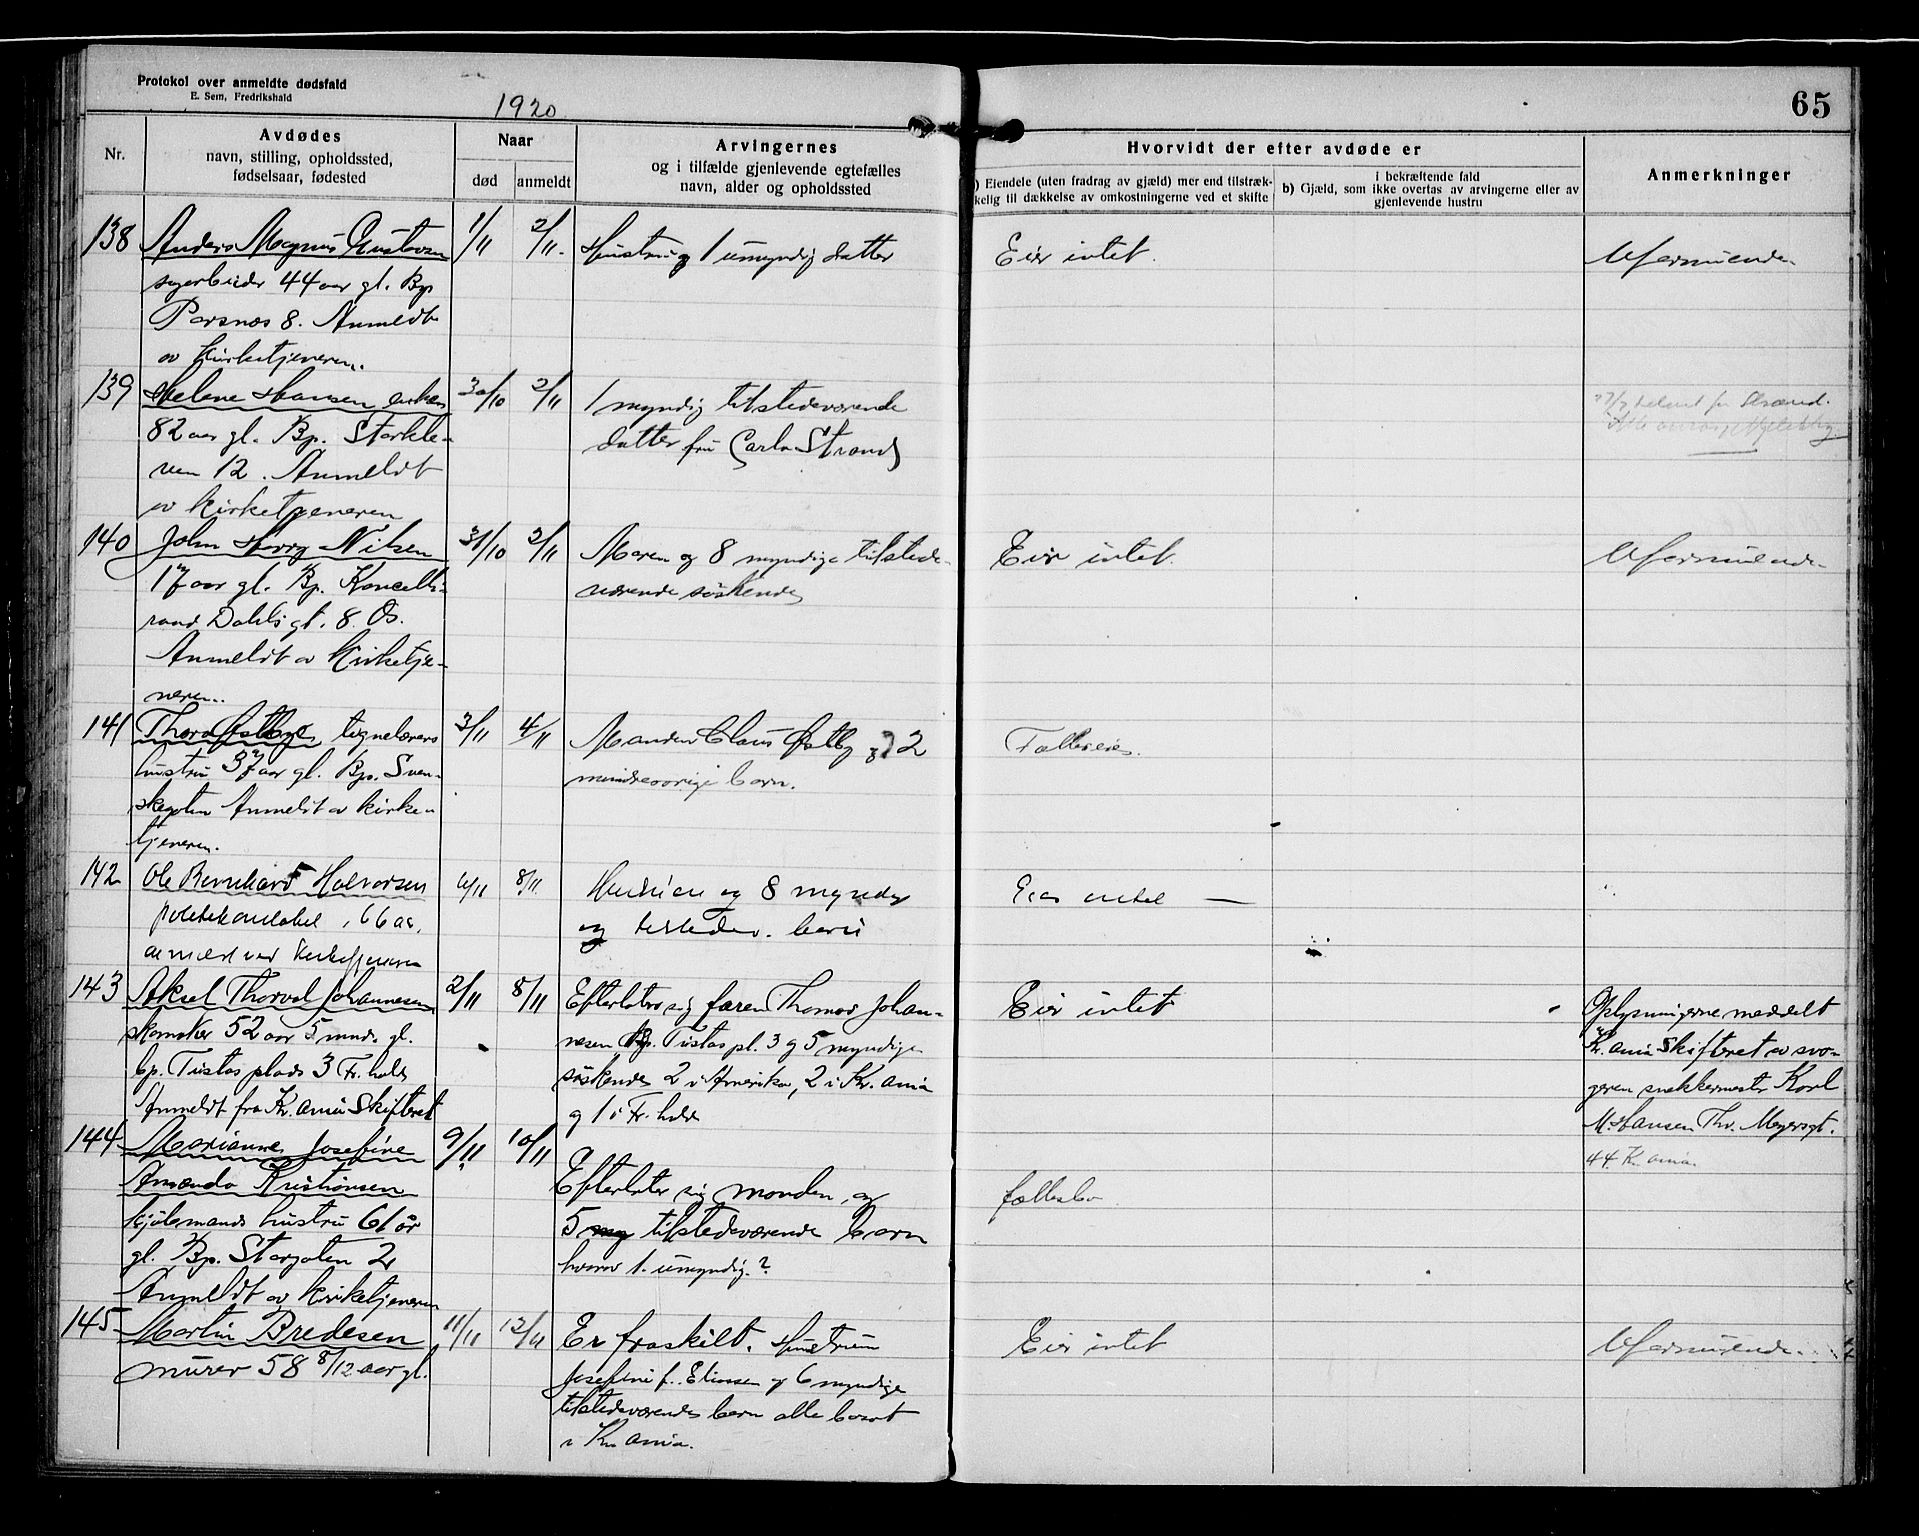 Protokol over anmeldte dødsfald
E. Sem, Fredrikshald
1920
65
Nr.
Avdødes
navn, stilling, opholdssted,
fødselsaar, fødested
Naar
død
anmeldt
Arvingernes
og i tilfælde gjenlevende egtefælles
navn, alder og opholdssted
Hvorvidt der efter avdøde er
) Eiendele (uten fradrag av gjæld) mer end tilstræk-
kelig til dækkelse av omkostningerne ved et skifte
i bekræftende fald
b) Gjæld, som ikke overtas av arvingerne eller av
gjenlevende hustru
Anmerkninger
138
Anders Magnus Gustavsen
44 aar gl. Bp
8. Anmeldt
av kirketjeneren.
1/11
2/11.
Hustru og 1 umyndig datter
Eier intet.
Uformuende
139
Helene Hansen enke
82 aar gl. Bp. Storkle-
ven 12. Anmeldt
av kirketjeneren
30/10
2/11
1 myndig tilstedeværende
datter fru Carla Strand
140
John Harry Nilsen
17 aar gl. Bp. Kancelli-
raad Dahls gt. 8. Os.
Anmeldt av kirketje-
neren.
31/10
2/11
Moren og 8 myndige tilstede-
værende søskende
Eier intet.
Uformuende
141
Thora Østbye tegnelærers
hustru 37 aar gl. Bp. Sven-
skegaten Anmeldt av kirke-
tjeneren.
3/11
4/11
Manden Claus Østby og 2
mindreaarige barn.
Fælleseie.
142
Ole Bernhard Halvorsen
politikonstabel, 66 aar,
anmeldt ved kirketjeneren
6/11
8/11
Hustruen og 8 myndig
og tilstedev. barn
Eier intet —
143
Aksel Thorval Johannesen
skomaker 52 aar 5 mnd. gl.
bp. Tistas plads 3 Fr.hald
Anmeldt fra Kr.ania Skifteret
2/11
8/11
Efterlater sig faren Thomas Johan-
nesen Bp. Tistas pl. 3 og 5 myndige
søskende 2 i Amerika, 2 i Kr.ania
og 1 i Fr.hald
Eier intet
Oplysningerne meddelt
Kr.ania Skifteret av svo-
geren snekkermester Karl
M. Hansen Thv. Meyersgt.
44 Kr.ania.
144
Marianne Josefine
Amanda Kristiansen
kjølemands hustru 61 år
gl. Bp. Storgaten 2
Anmeldt av kirketjeneren
9/11
10/11
Efterlater sig manden og
5 my tilstedeværende barn
hvorav 1. umyndig.?
fællesbo
145
Martin Bredesen
murer 58 8/12 aar gl.
11/11
12/11
Er fraskilt. Hustrum
Josefine f. Eliassen og 6 myndige
tilstedeværende barn alle bosat
i Kr.ania.
Eier intet
Uformuende